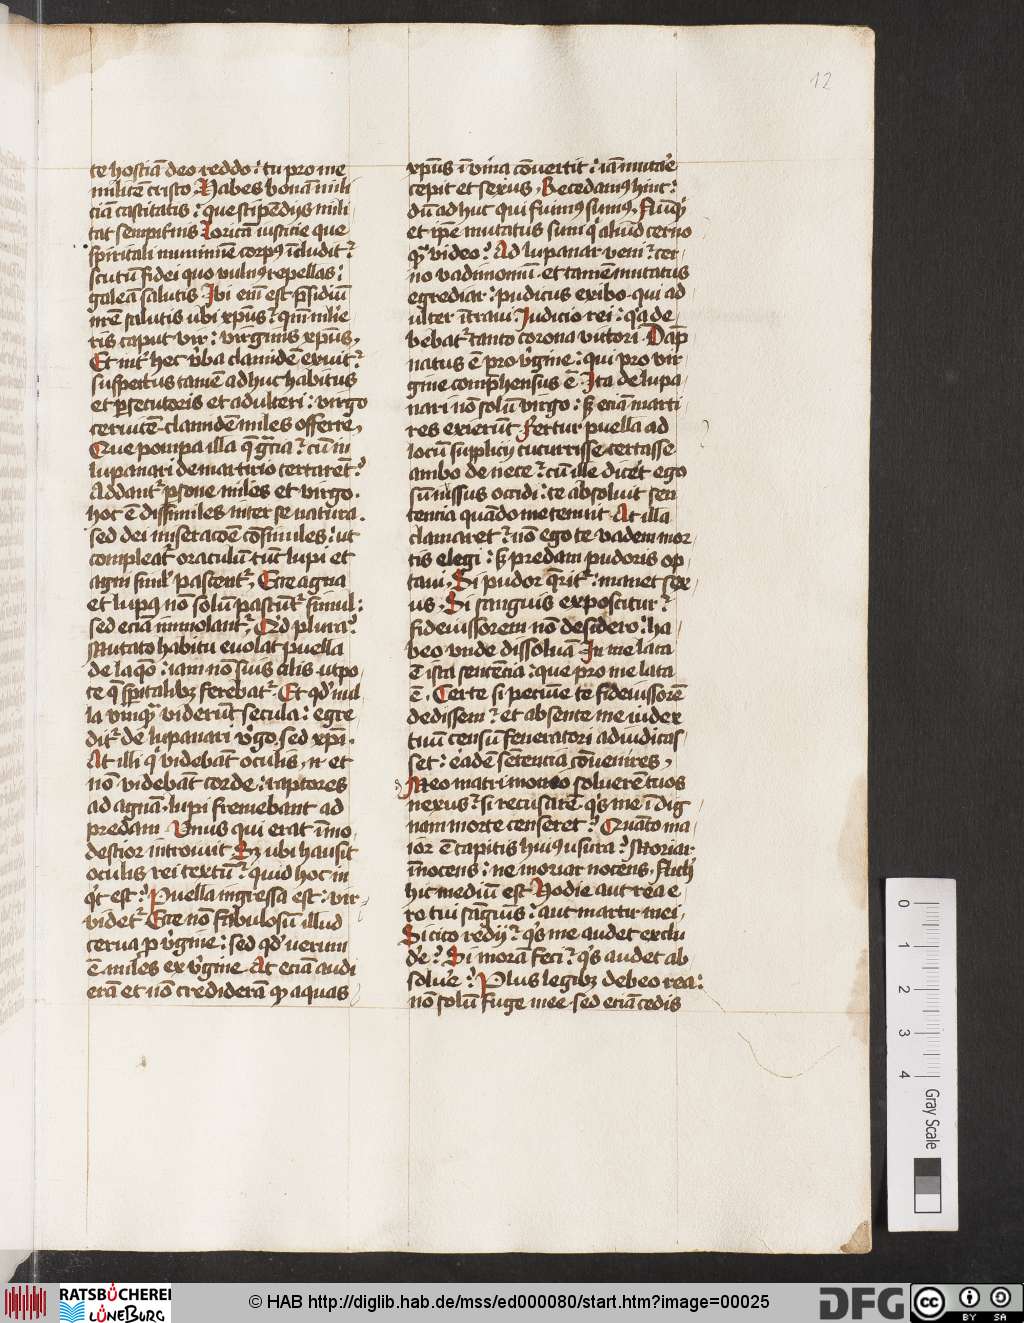 12
te hostiā deo reddo: tu pro me
militē cristo. Habes bonā mili
ciā castitatis: que stipendijs mili
tat sempitīnis. Loricā iusticie que
spiritali munimīne corpꝰ īcludit:
scutū fidei quo vulnꝰ repellas:
galeā salutis. Ibi em̄ est p̄sidiū
nr̄e salutis ubi xp̄us: qm̄ mulie
ris caput vir: virginis xp̄us,
Et int̄ hec v̄ba clamidē exuit:
suspectus tamē adhuc habitus
et p̄secutoris et adulteri: virgo
ceruicē. clamidē miles offerre,
Que pompa illa q̄ gr̄cia: cū in
lupanari de martirio certaret:
Addant̄ p̄sone miles et virgo.
hoc ē dissimiles inter se natura.
sed dei miseracōe cōsimiles: ut
compleat̄ oraculū tūc lupi et
agni simul pascent̄, Ecce agna
et lupꝰ nō solū pascūt̄ simul:
sed eciā immolant̄, Qd plura:
Mutato habitu euolat puella
de laq̄o: iam nō suis alis. utpo
te q̄ sp̄italibꝫ ferebat̄. Et qd̄ nul
la vnq̄ viderūt secula: egre
dit̄ de lupanari v̄go. sed xp̄i.
At illi q̄ videbāt oculis, et
nō videbāt corde: raptores
ad agnā. lupi fremebant ad
predam. Vnus qui erat īmo
destior introiuit. Sꝫ ubi hausit
oculis rei textū: quid hoc in
q̄t est: Puella ingressa est: vir
videt̄. Ecce nō fabulosū illud
cerua p̄ v̄gine: sed qd̄ verum
ē miles ex v̄gine. At eciā audi
erā et nō credidetā qꝫ aquas
xp̄us ī vina cōuertit: iā mutare
cepit et sexus. Recedamꝰ hinc:
dū adhuc qui fuimꝰ sumꝰ. Nūqd̄
et ip̄e mutatus sum q̄ aliud cerno
q̄ video: Ad lupanar veni: cer
no vadimoniū. et tamē mutatus
egrediar: pudicus exibo. qui ad
ulter ītraui. Judicio rei: q̄a de
bebat̄ tanto corona victori. Dāp
natus ē pro v̄gine: qui pro vir
gine comp̄hensus ē. Ita de lupa
nari nō solū virgo: sꝫ eciā marti
res exierūt. Fertur puella ad
locū suplicij cucurrisse. certasse
ambo de nece: cū ille dicēt ego
sū iussus occidi: te absoluit sen
tencia quādo me tenuit. At illa
clamaret: nō ego te vadem mor
tis elegi: sꝫ predam pudoris op
taui. Si pudor q̄rit̄: manet sex
us. Si sanguis exposcitur:
fideiussorem nō desidero: ha
beo vnde dissoluā. In me lata
ē ista sentēcia: que pro me lata
ē. Certe si pecunie te fideiussorē
dedissem: et absente me iudex
tuū censū feneratori adiudicas
set: eadē sentencia cōuenires,
Meo matrimonio soluerē tuos
nexus: si recusarē q̄s me ī dig
nam morte censeret: Quāto ma
ior ē capitis huiꝰ usura: Moriar
īnocens: ne moriar nocens. Nich̄
hic mediū est. Hodie aut rea e
ro tui sāguinis: aut martir mei.
Si cito redij: q̄s me audet exclu
de: Si morā feci: q̄s audet ab
solue: Plus legibꝫ debeo rea:
nō solū fuge mee. sed eciā cedis
0 1 2 3 4
Gray Scale
RATSBÜCHEREI
LÜNEBURG
© HAB http://diglib.hab.de/mss/ed000080/start.htm?image=00025
DFG
cc BY SA